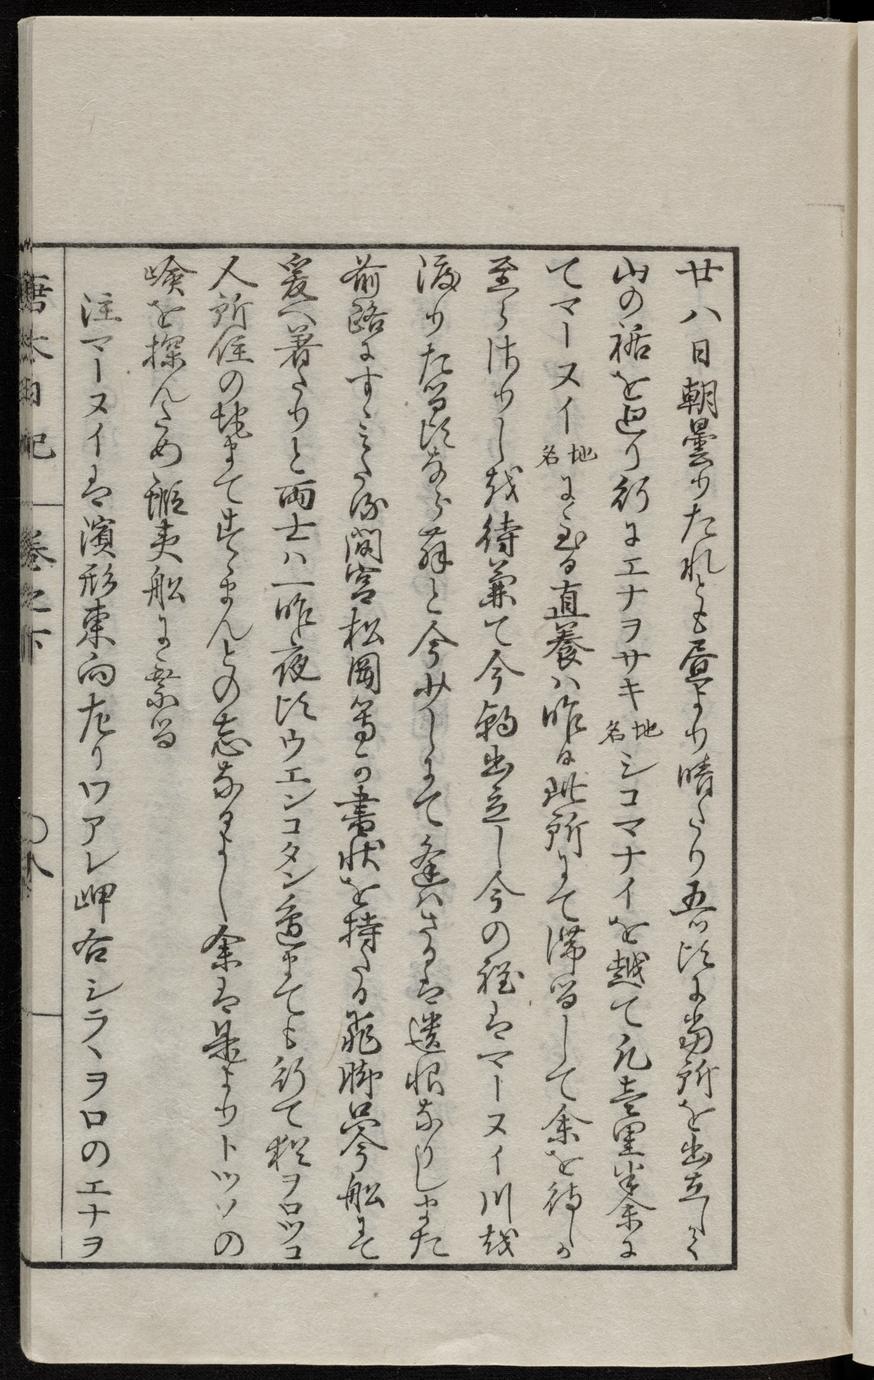 廿八日朝曇りたれとも昼より晴たり五ツ頃に當所を出立して
山の裾を辺り行にエナヲサキ地名シコマナイを越て凡壱里半余に
てマーヌイ地名に至る直養ハ昨日此所にて滞留して余を待しか
至らさりし故待兼て今朝出立し今の程はマーヌイ川を
渡りたる頃ならむと今少しにて逢ハさるは遺恨なりしまた
前路にすゝみたる間宮松岡等の書状を持たる飛脚只今船にて
爰へ着たりと両士ハ一昨夜頃ウエンコタン迄まても行て猶ヲロツコ
人所住の地まてすゝまんとの志なるよし余は是よりトツソの
嶮を探んため雖夷船に乗る
注マーヌイは濱形東向左りワアレ岬右シラヽヲロのエナヲ
唐太日記 巻之下 〇八